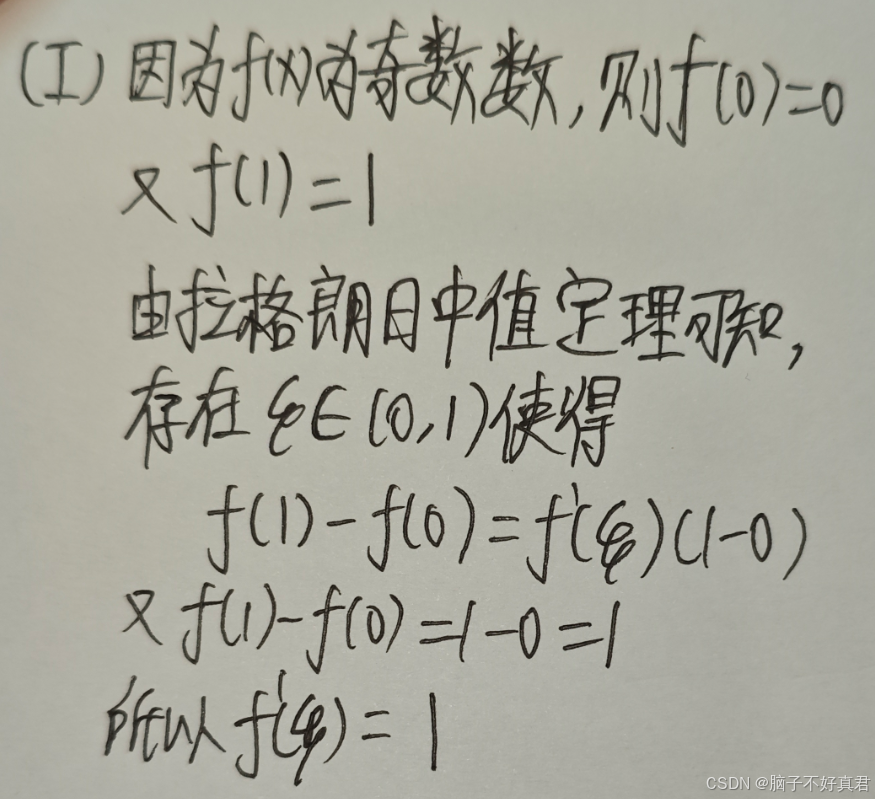 (I) 因为f(x)为奇数数,则f(0)=0
又f(1)=1
由拉格朗日中值定理可知,
存在ξ∈(0,1)使得
f(1)-f(0)=f'(ξ)(1-0)
又f(1)-f(0)=1-0=1
所以f'(ξ)=1
CSDN @脑子不好真君